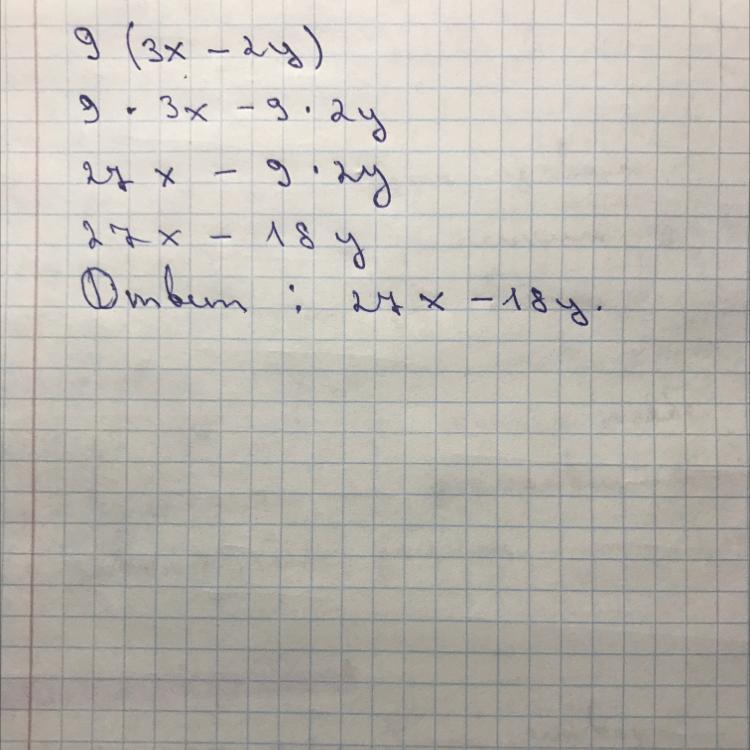 9 (3x - 2y)
9 · 3x - 9 · 2y
27 x - 9 · 2y
27x - 18 y
Ответ : 27 x - 18y.